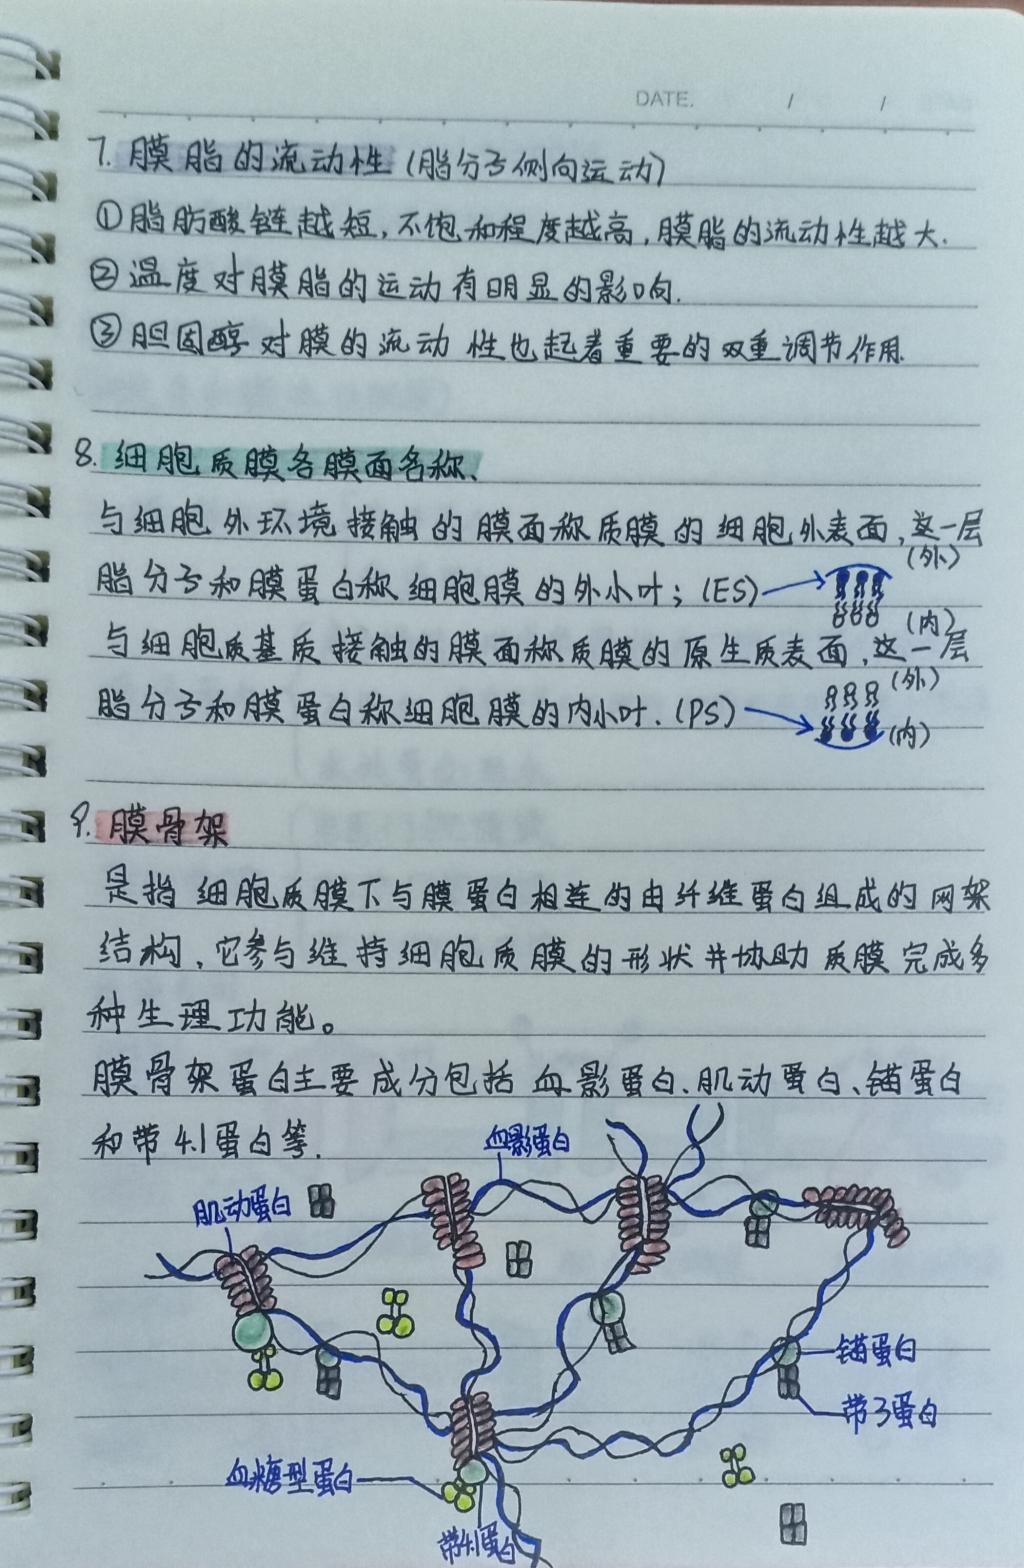 DATE. / /
7. 膜脂的流动性 (脂分子侧向运动)
①脂肪酸链越短,不饱和程度越高,膜脂的流动性越大.
②温度对膜脂的运动有明显的影响.
③胆固醇对膜的流动性也起着重要的双重调节作用.
8. 细胞质膜各膜面名称、
与细胞外环境接触的膜面称质膜的细胞外表面,这一层
(外)
脂分子和膜蛋白称细胞膜的外小叶; (ES)
(内)
与细胞质基质接触的膜面称质膜的原生质表面,这一层
(外)
脂分子和膜蛋白称细胞膜的内小叶. (PS)
(内)
9. 膜骨架
是指细胞质膜下与膜蛋白相连的由纤维蛋白组成的网架
结构,它参与维持细胞质膜的形状并协助质膜完成多
种生理功能。
膜骨架蛋白主要成分包括血影蛋白、肌动蛋白、锚蛋白
和带4.1蛋白等.
血影蛋白
肌动蛋白
锚蛋白
带3蛋白
血糖型蛋白
带4.1蛋白